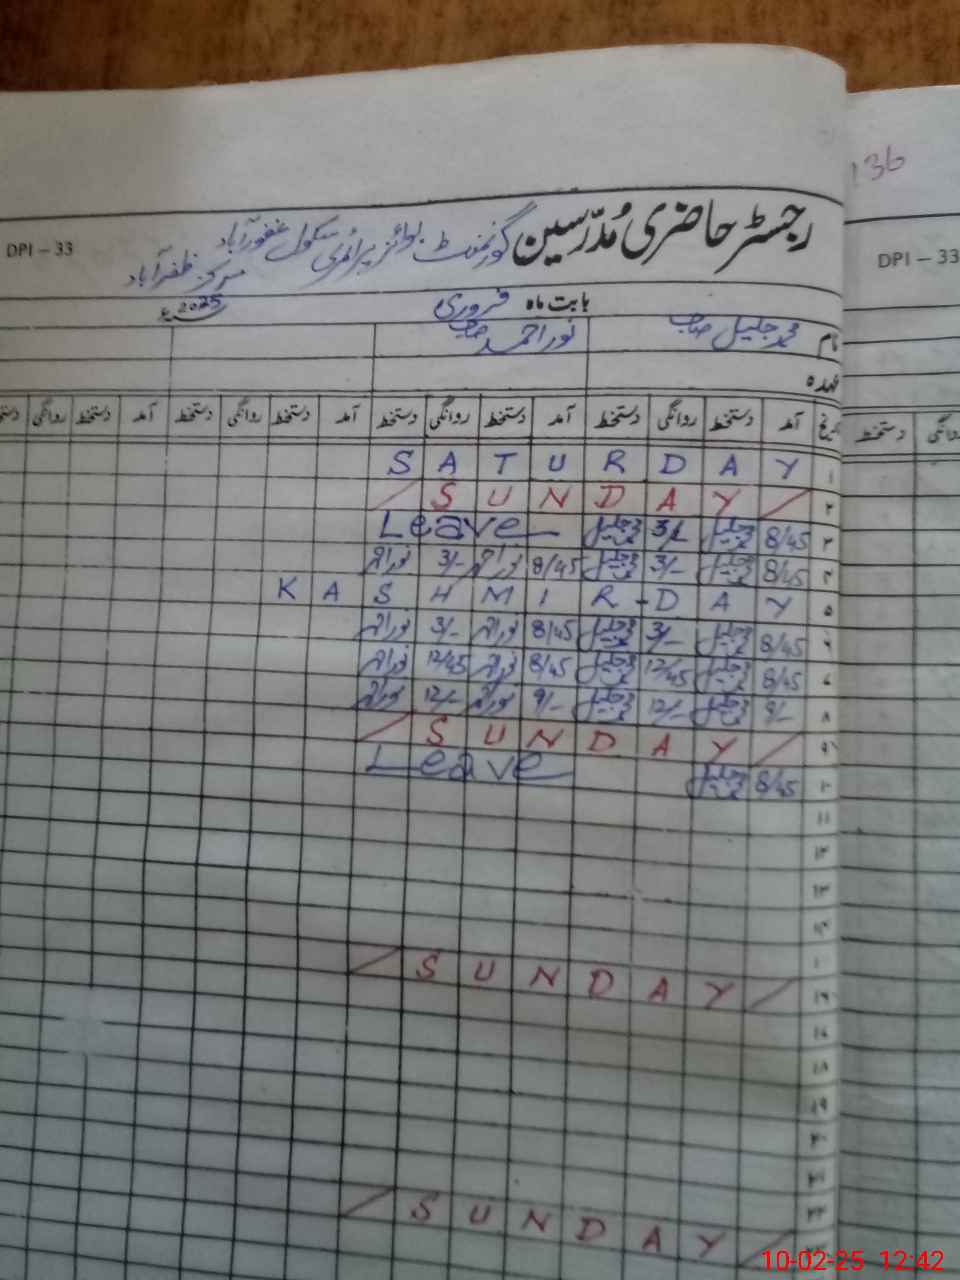 136
رجسٹر حاضری مُدرّسین گورنمنٹ بوائز پرائمری سکول غفورآباد
مرکز ظفرآباد
DPI – 33
DPI – 33
بابت ماہ فروری 2025ء
نام محمد جلیل صاحب نور احمد صاحب
عہدہ
تاریخ آمد دستخط روانگی دستخط آمد دستخط روانگی دستخط آمد دستخط روانگی دستخط آمد دستخط روانگی دستخط
روانگی دستخط
۱ SATURDAY
۲ / SUNDAY /
۳ 8/45 جلیل 3/- جلیل Leave
۴ 8/45 جلیل 3/- جلیل 8/45 نوراحمد 3/- نوراحمد
۵ KASHMIR - DAY
۶ 8/45 جلیل 3/- جلیل 8/45 نوراحمد 3/- نوراحمد
۷ 8/45 جلیل 12/45 جلیل 8/45 نوراحمد 12/45 نوراحمد
۸ 9/- جلیل 12/- جلیل 9/- نوراحمد 12/- نوراحمد
۹ / SUNDAY /
۱۰ 8/45 جلیل Leave
۱۱
۱۲
۱۳
۱۴
۱۵
۱۶ / SUNDAY /
۱۷
۱۸
۱۹
۲۰
۲۱
۲۲
۲۳ / SUNDAY /
10-02-25 12:42